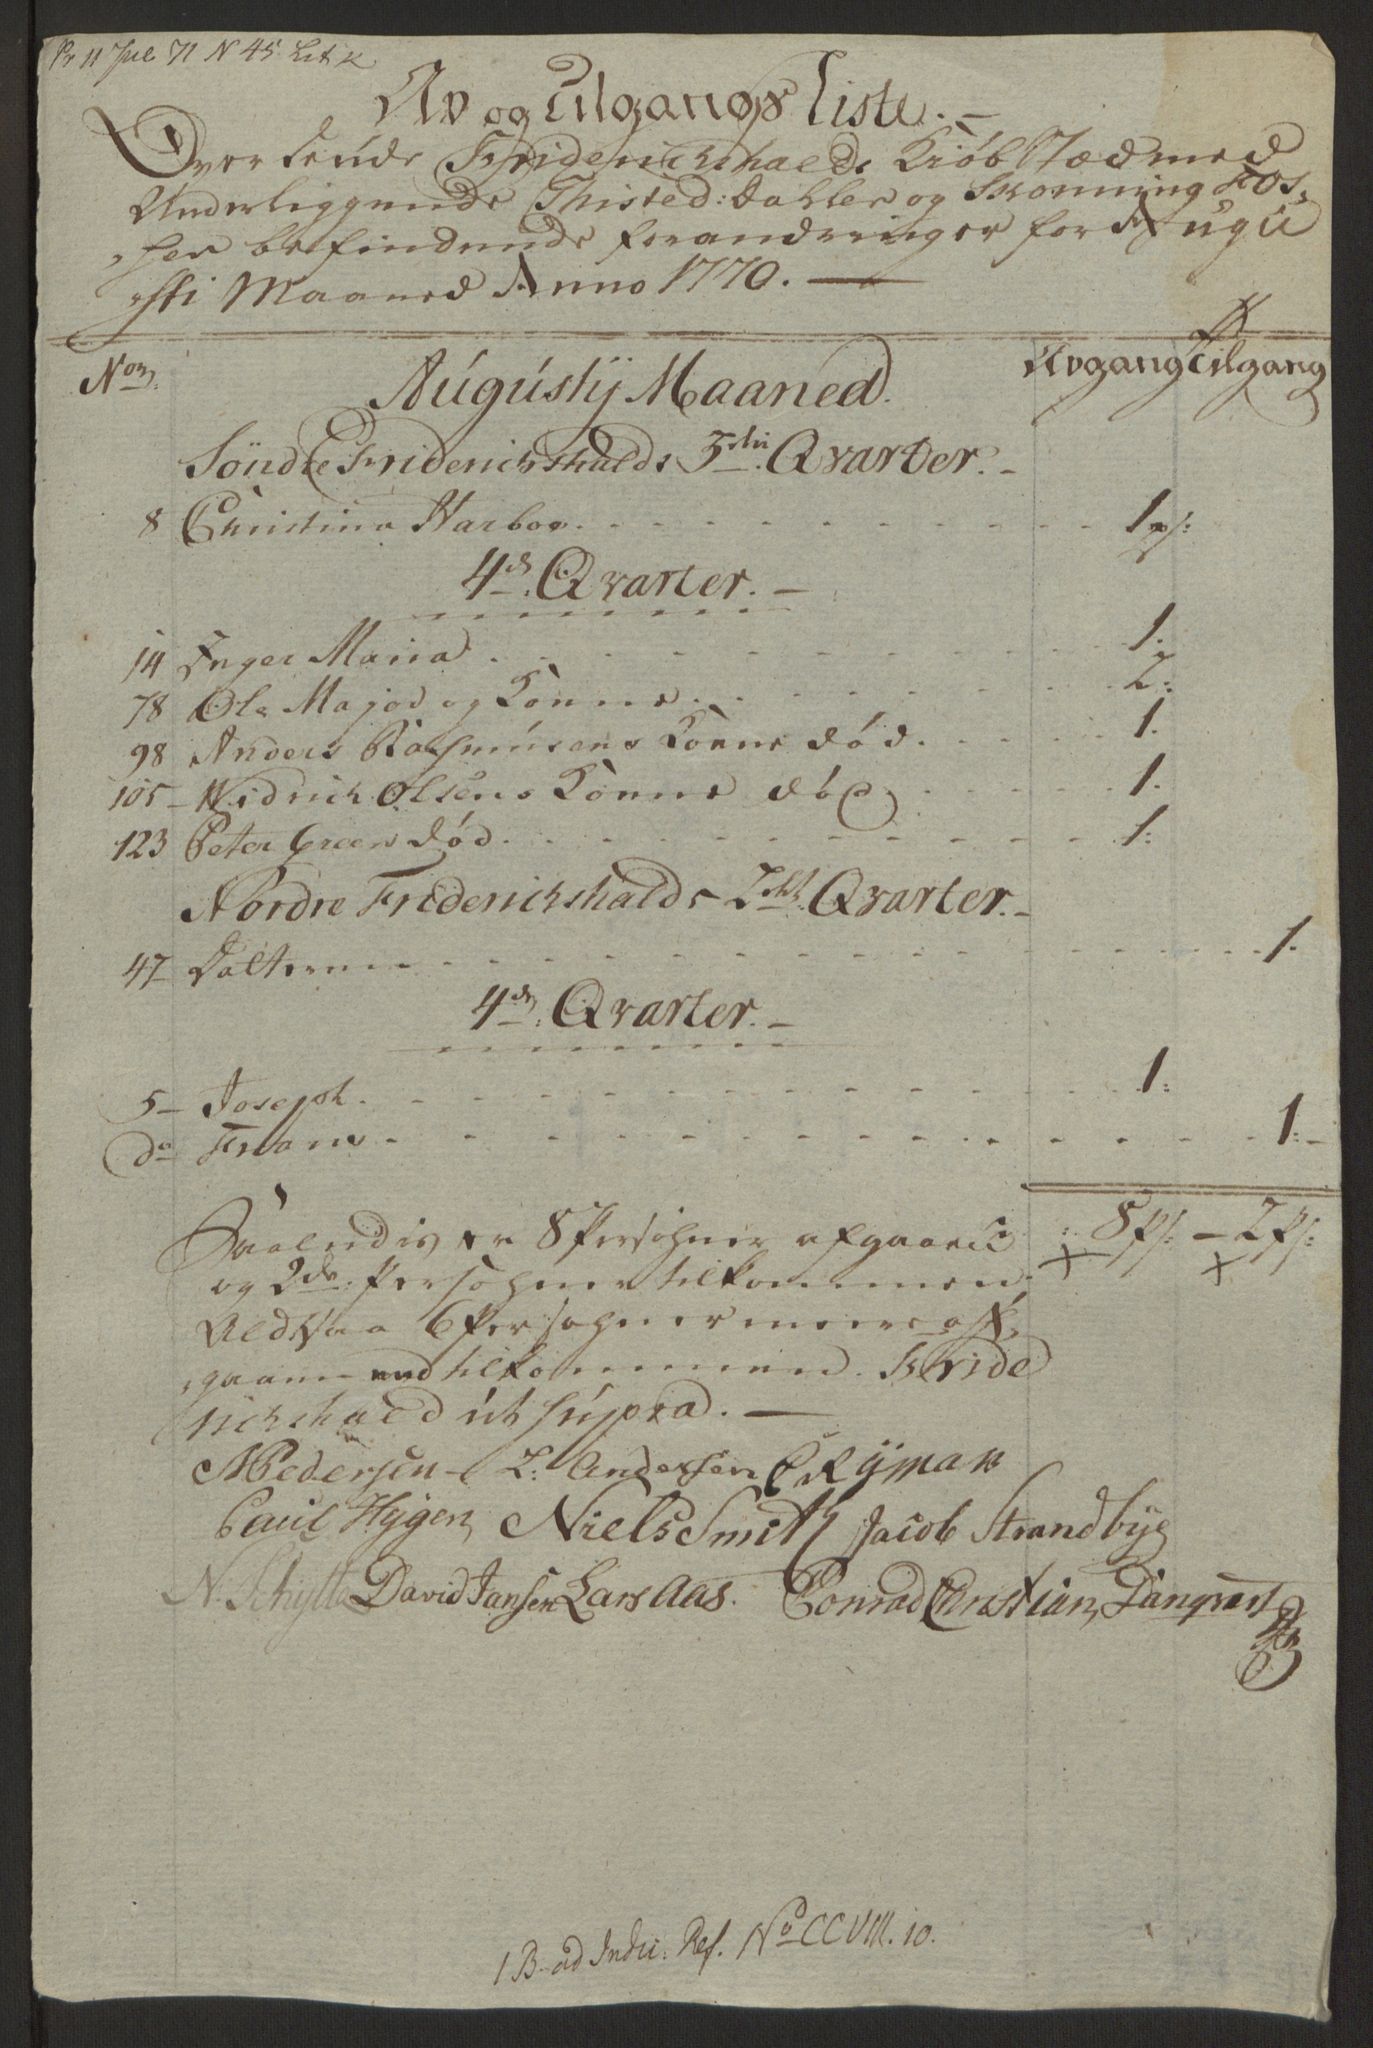 Pr 11 Jul 71 N 45 Lit K
Av og Tilgangs Liste. –
Over Friderichshalds Kiöbstæd med
Underliggende Thisted: Dahler og Skonning Fos,
befindende forandringer for Augu
sti Maaned Anno 1770. —
Nor. Augustij Maaned. Avgang Tilgang
Söndre Friderichshalds 3die Qvarter. –
8 Christina Harboe. 1 ps:
4de Qvarter. –
14 Inger Maria 1.
78 Ole Major og Konne. 2:
98 Anders Rasmusens Konne död. 1.
105 – Widrich Olsens Konne död 1.
123 Peter Green död. 1:
Nordre Friderichshalds 2det Qvarter. –
47 – 1.
4de Qvarter. –
5 – Joseph. 1:
do Frans 1: –
Saaledis er 8 Persohner afgaaen : 8 Ps: – 2 Ps:
og 2de Persohner tilkommen,
Altsaa 6 Persohner meere af,
gaaen end tilkommen. Fride
richshald ut supra. —
M Pedersen L: Andersen C Ryman
Paul Hygen Niels Smith Jacob Strandbye
N. Schytte David Jansen Lars Aas. Conrad Christian Danqvart
1 B ad Indic: Ref. No CCVIII. 10.